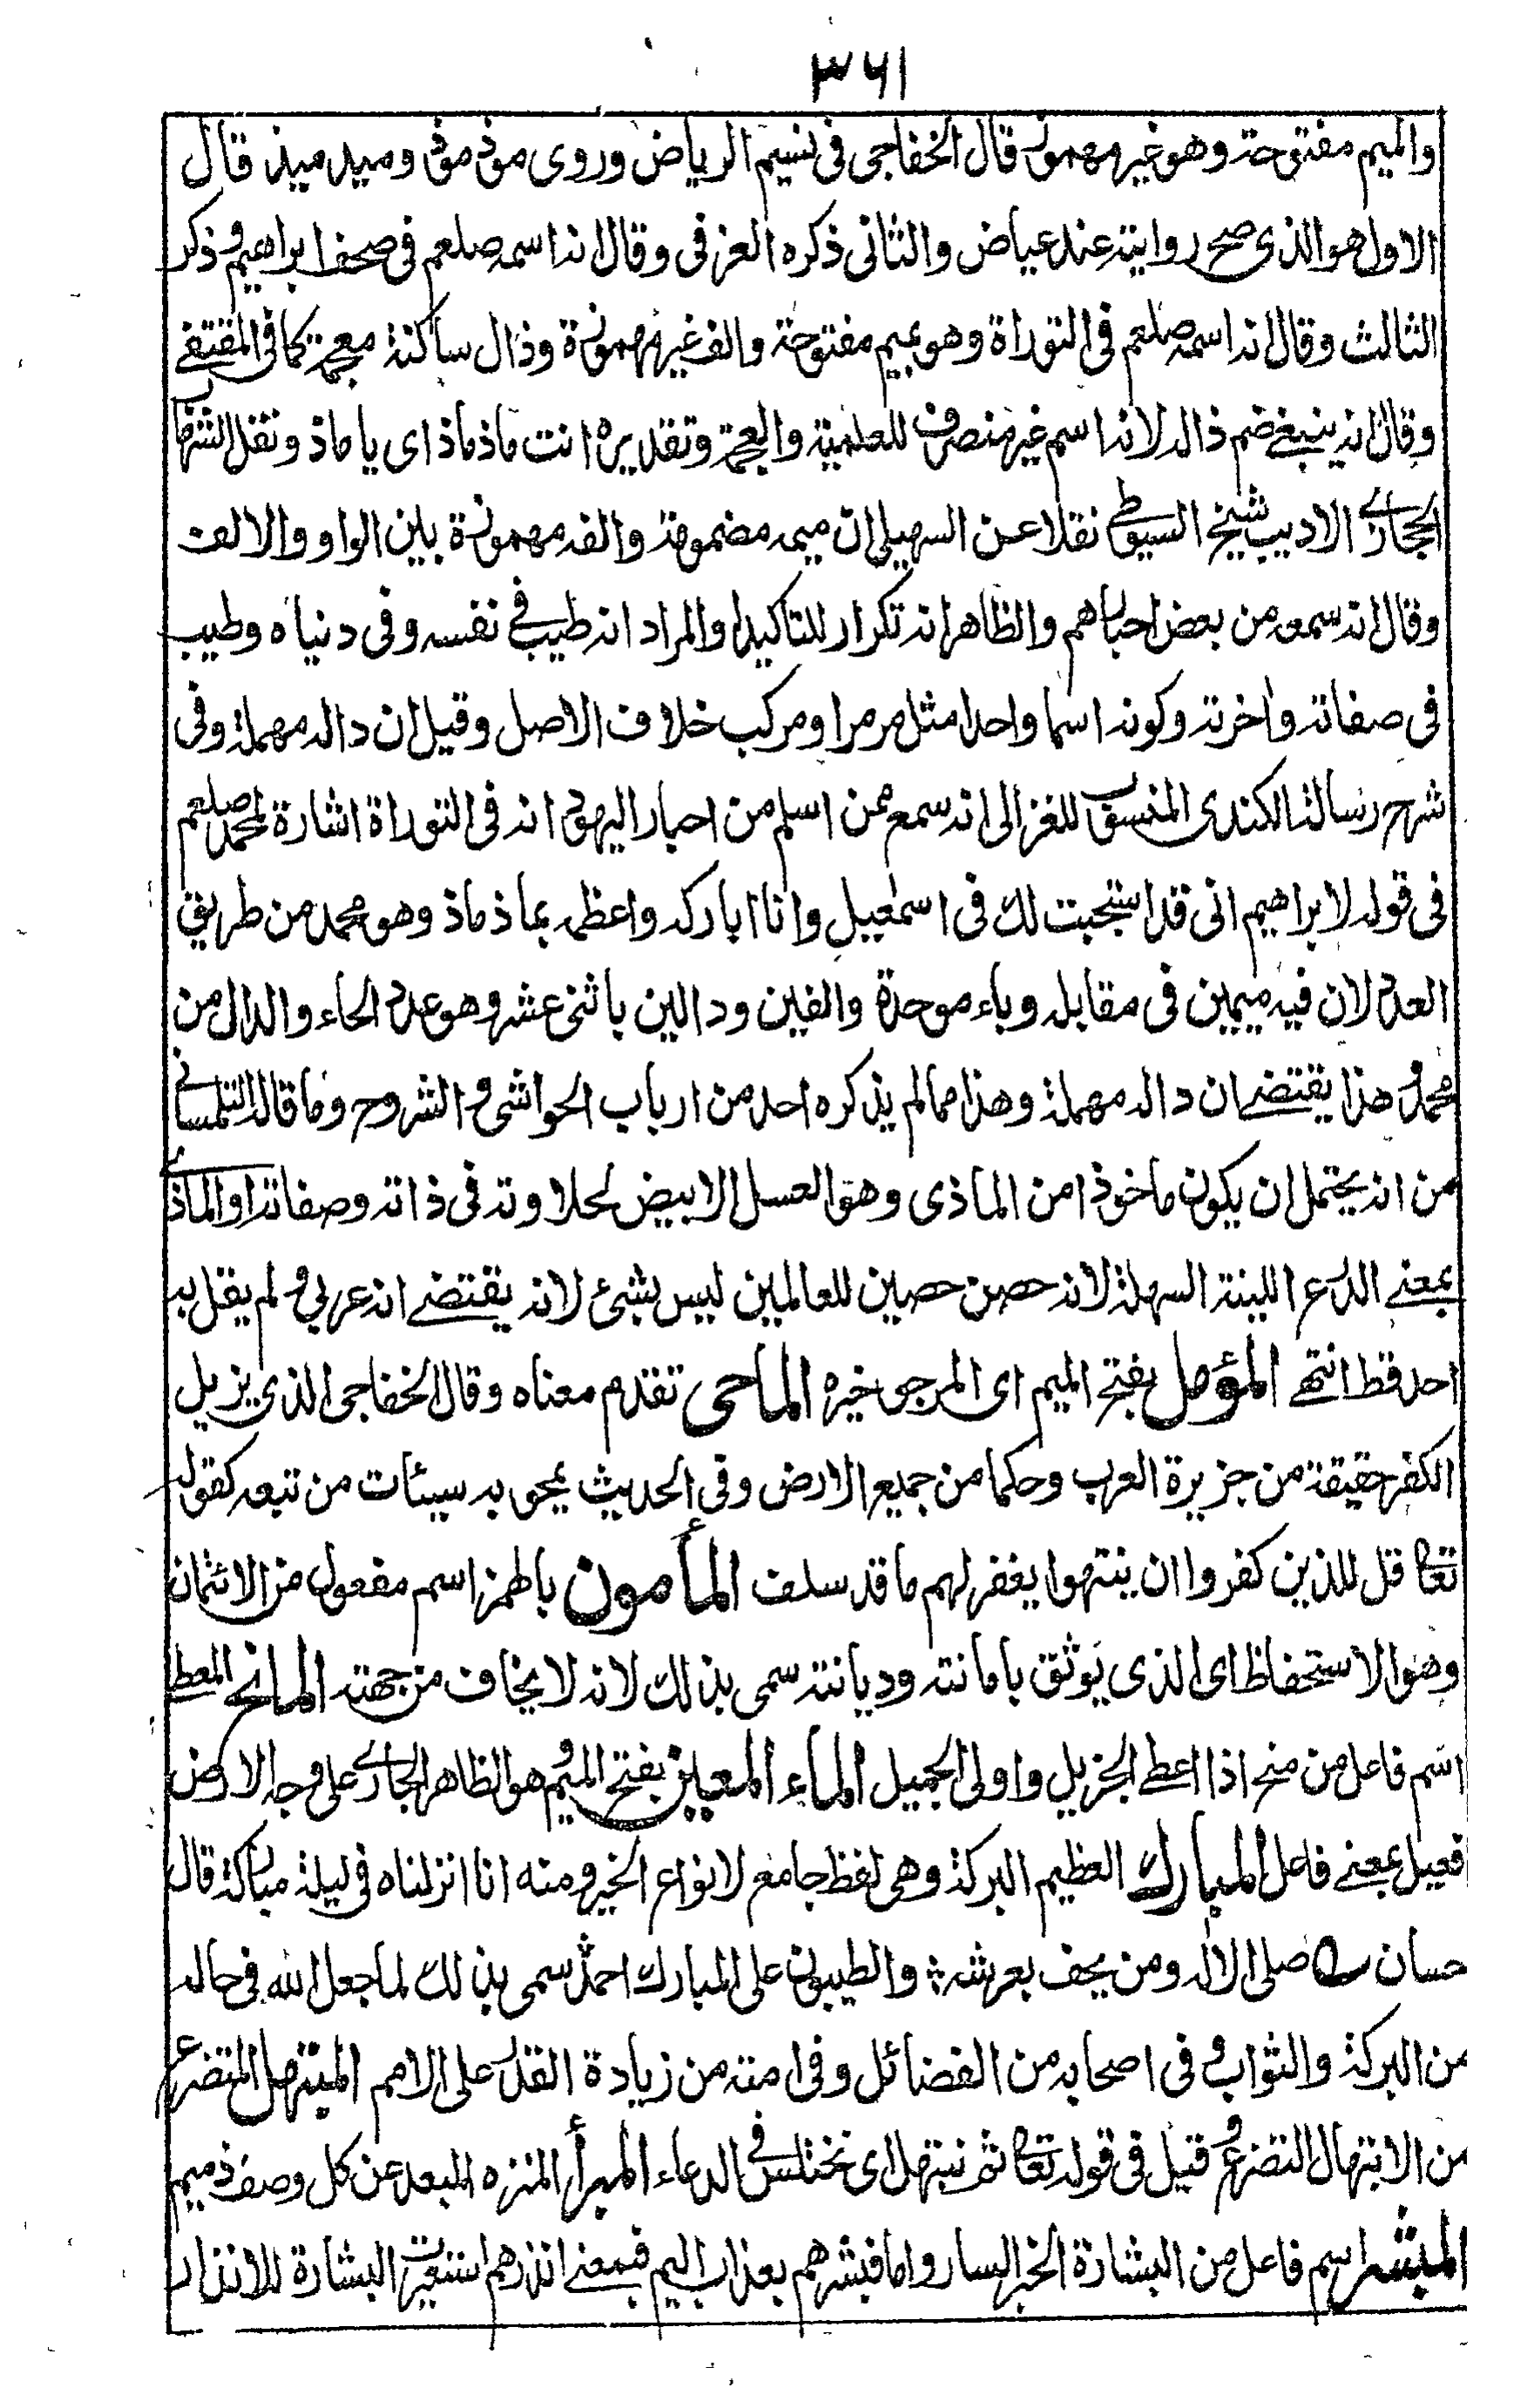 ٣٦١
والميم مفتوحة وهو غير مهموز قال الخفاجى فى نسيم الرياض وروى موذ موذ وميد ميذ قال
الاول هو الذى صح روايته عند عياض والثانى ذكره العزفى وقال انه اسمه صلعم فى صحف ابراهيم وذكر
الثالث وقال انه اسمه صلعم فى التوراة وهو بميم مفتوحة والف غير مهموزة وذال ساكنة معجمة كما فى المقتفى
وقال انه ينبغى ضم ذاله لانه اسم غير منصرف للعلمية والعجمة وتقديره انت ماذ ماذ اى يا ماذ ونقل الشهاب
الحجازى الاديب شيخ السيوطى نقلا عن السهيلى ان ميمه مضمومة والفه مهموزة بين الواو والالف
وقال انه سمعه من بعض احبارهم والظاهر انه تكرار للتاكيد او المراد انه طيب فى نفسه وفى دنياه وطيب
فى صفاته واخرته وكونه اسما واحدا مثل مرمر او مركب خلاف الاصل وقيل ان داله مهملة وفى
شرح رسالة الكندى المنسوب للغزالى انه سمع ممن اسلم من احبار اليهود انه فى التوراة اشارة لمحمد صلعم
فى قوله لابراهيم انى قد استجبت لك فى اسمعيل وانا اباركه واعظمه بماذ ماذ وهو محمد من طريق
العدد لان فيه ميمين فى مقابله وباء موحدة والفين ودالين باثنى عشر وهو عدد الحاء والدال من
محمد وهذا يقتضى ان داله مهملة وهذا مما لم يذكره احد من ارباب الحواشى والشروح وما قاله التلمسانى
من انه يحتمل ان يكون ماخوذا من الماذى وهو العسل الابيض لحلاوته فى ذاته وصفاته او الماذى
بمعنى الدرع اللينة السهلة لانه حصن حصين للعالمين ليس بشئ لانه يقتضى انه عربى ولم يقل به
احد قط انتهى المؤمل بفتح الميم اى المرجو خيره الماحى تقدم معناه وقال الخفاجى الذى يزيل
الكفر حقيقة من جزيرة العرب وحكما من جميع الارض وفى الحديث يمحو به سيئات من تبعه كقوله
تعا قل للذين كفروا ان ينتهوا يغفر لهم ما قد سلف المأمون بالهمز اسم مفعول من الائتمان
وهو الاستحفاظ اى الذى يوثق بامانته وديانته سمى بذلك لانه لا يخاف من جهته المانح المعطى
اسم فاعل من منح اذا اعطى الجزيل واولى الجميل الماء المعين بفتح الميم وهو الظاهر الجارى على وجه الارض
فعيل بمعنى فاعل المبارك العظيم البركة وهى لفظ جامع لانواع الخير ومنه انا انزلناه فى ليلة مباركة قال
حسان صلى الاله ومن يحف بعرشه والطيبون على المبارك احمد سمى بذلك لما جعل الله فى حاله
من البركة والثواب وفى اصحابه من الفضائل وفى امته من زيادة القدر على الامم المبتهل المتضرع
من الابتهال التضرع وقيل فى قوله تعا ثم نبتهل اى نختلس فى الدعاء المبرأ المنزه المبعد عن كل وصف ذميم
المبشر اسم فاعل من البشارة الخبر السار واما فبشرهم بعذاب اليم فبمعنى انذرهم استعيرت البشارة للانذار